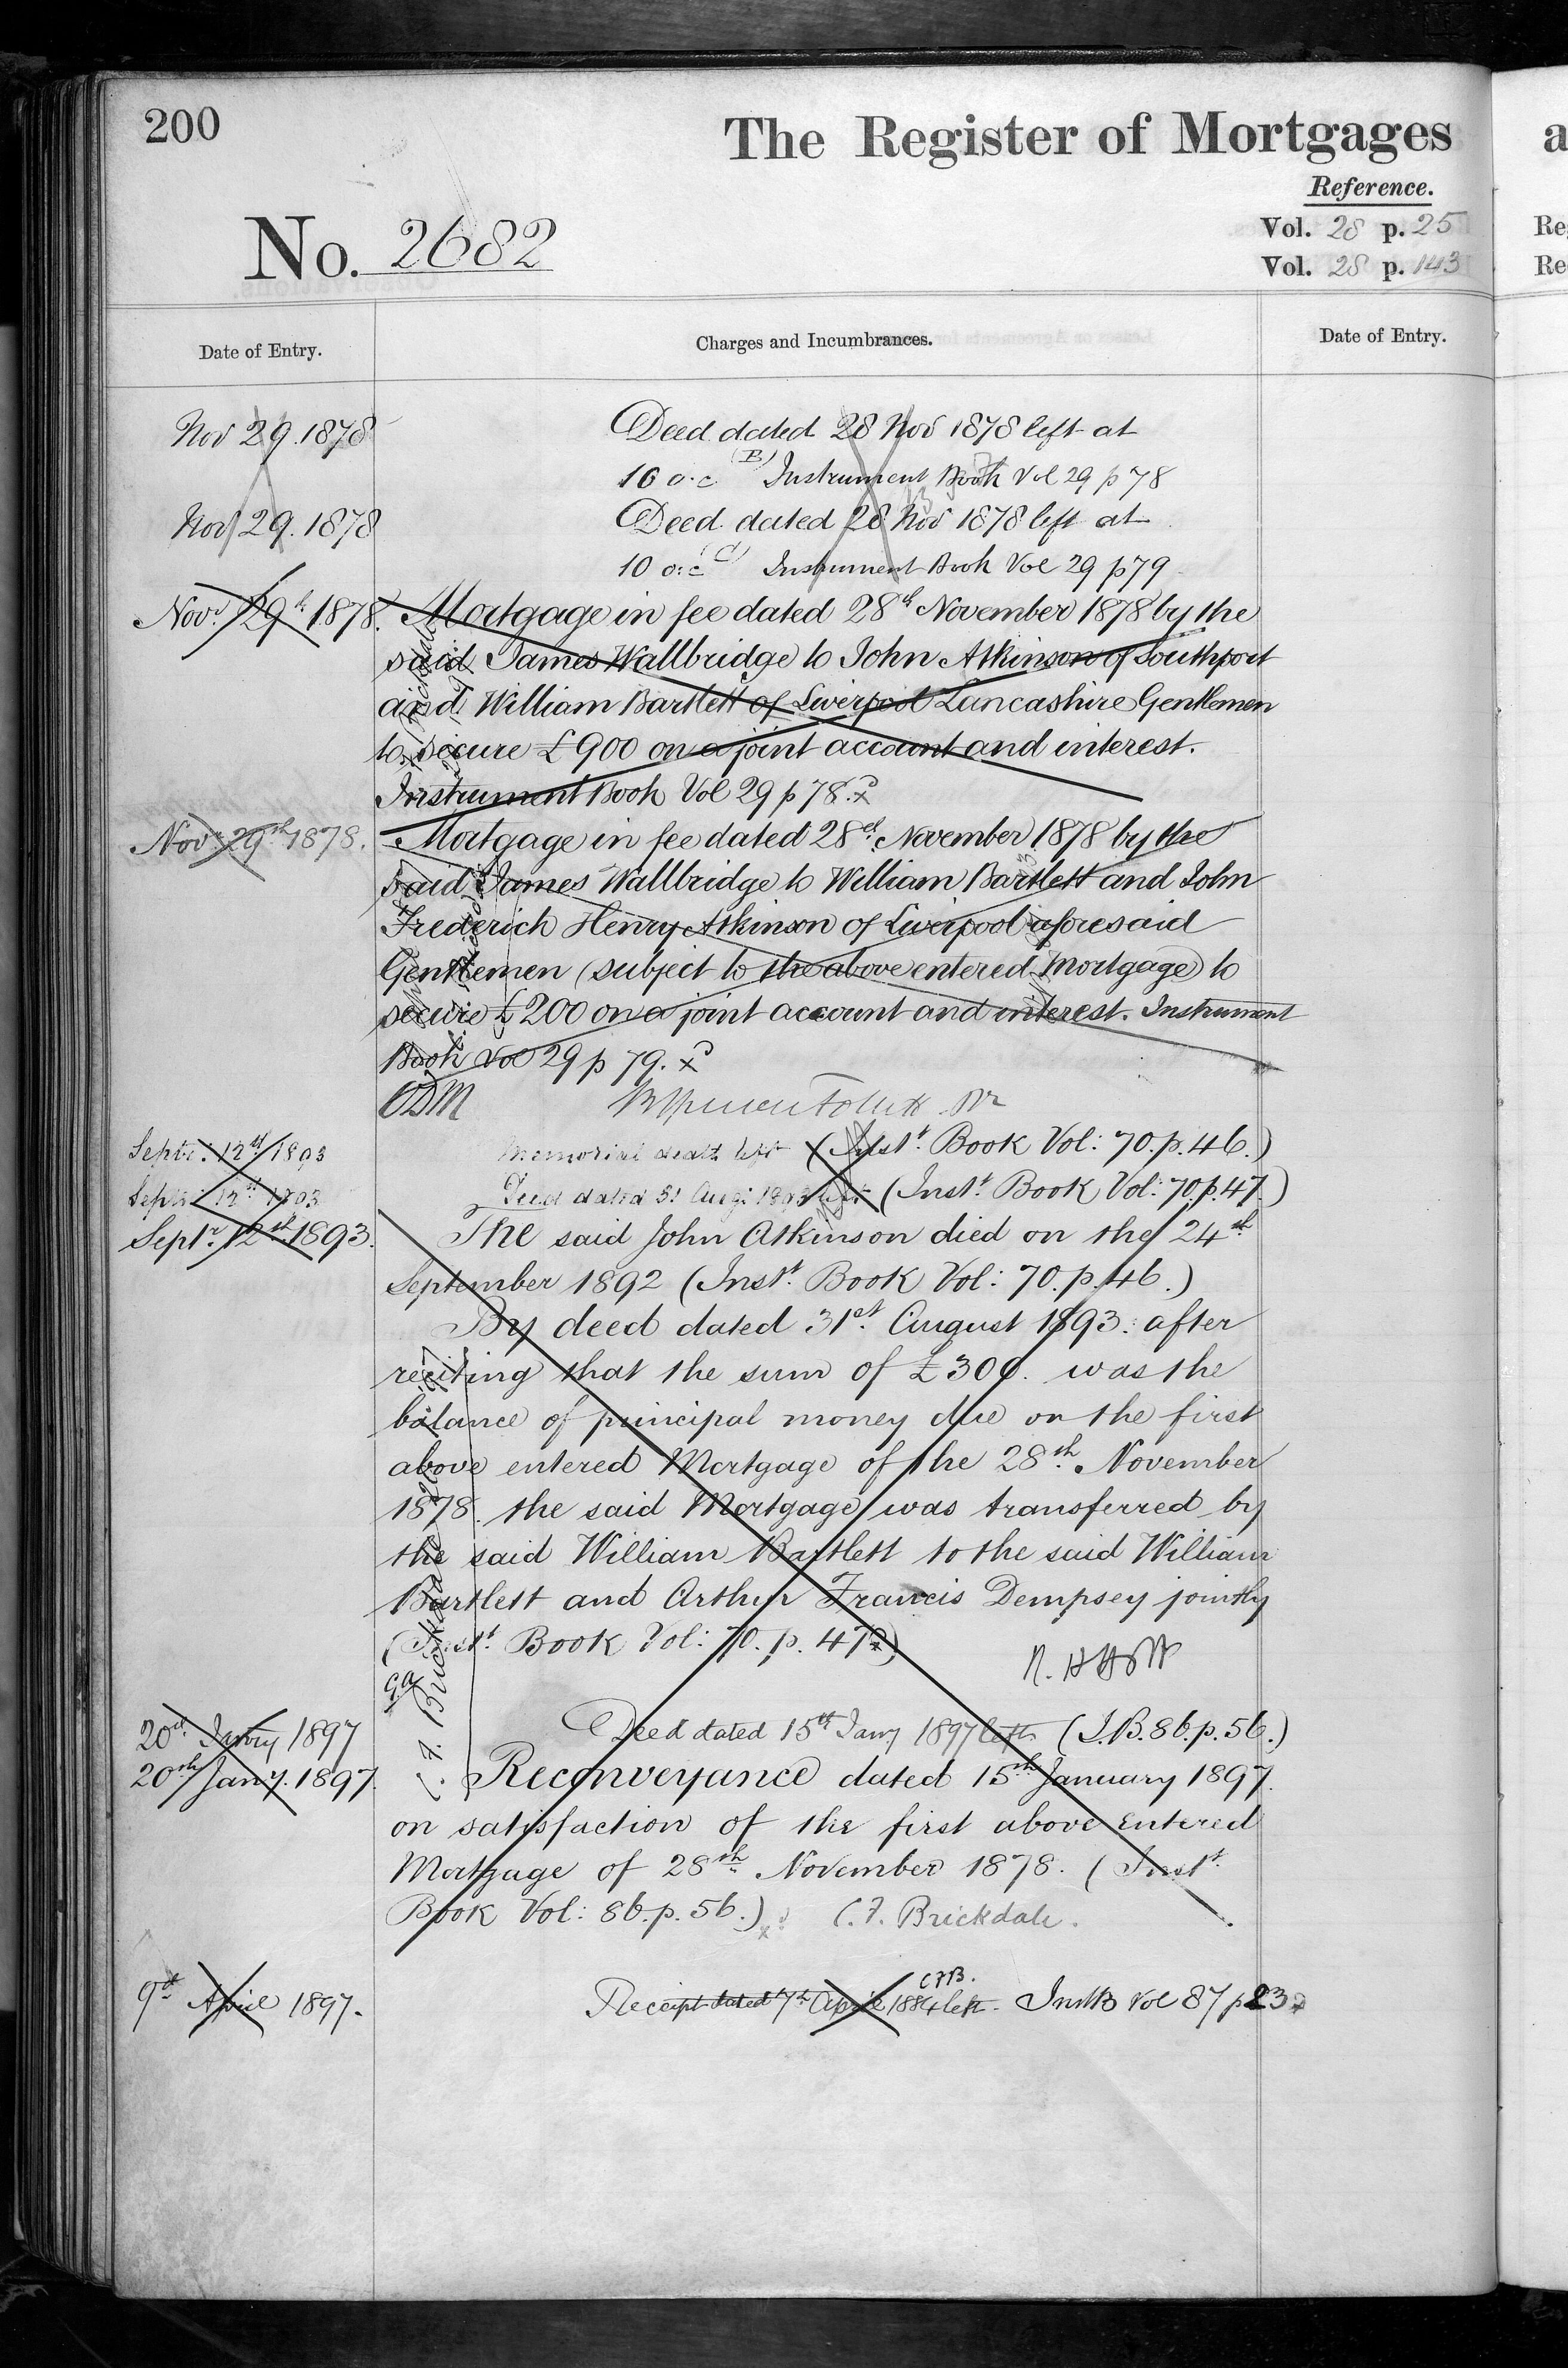 200
The Register of Mortgages
Reference.
No. 2682
Vol. 28 p. 25
Vol. 28 p. 143
Date of Entry.
Charges and Incumbrances.
Date of Entry.
Nov 29. 1878
Deed dated 28 Nov 1878 left at
10 o.c (B) Instrument Book Vol 29 p 78
Nov 29. 1878
Deed dated 28 Nov 1878 left at
10 o.c (C) Instrument Book Vol 29 p 79
Novr 29th 1878.
Mortgage in fee dated 28th November 1878 by the
said James Wallbridge to John Atkinson of Southport
and William Bartlett of Liverpool Lancashire Gentlemen
to secure £900 on a joint account and interest.
Instrument Book Vol 29 p 78.
Novr 29th 1878.
Mortgage in fee dated 28th November 1878 by the
said James Wallbridge to William Bartlett and John
Frederich Henry Atkinson of Liverpool aforesaid
Gentlemen (subject to the above entered Mortgage) to
secure £200 on a joint account and interest. Instrument
Book Vol 29 p 79.
Septr. 12th 1893
Memorial death left (Inst. Book Vol: 70. p. 46.)
Septr 12th 1893
Deed dated 31 Aug: 1893 left (Inst. Book Vol: 70. p. 47.)
Septr. 12th 1893.
The said John Atkinson died on the 24th
September 1892 (Inst. Book Vol: 70. p. 46.)
By deed dated 31st August 1893: after
reciting that the sum of £300. was the
balance of principal money due on the first
above entered Mortgage of the 28th November
1878. the said Mortgage was transferred by
the said William Bartlett to the said William
Bartlett and Arthur Francis Dempsey jointly
(Inst. Book Vol: 70. p. 47)
20th Janry 1897
Deed dated 15th Jany 1897 left (I.B. 86. p. 56.)
20th Jany. 1897.
Reconveyance dated 15th January 1897.
on satisfaction of the first above entered
Mortgage of 28th November 1878. (Inst.
Book Vol: 86. p. 56.) C. F. Brickdale.
9th April 1897.
CFB.
Receipt dated 7th April 1884 left. InstB Vol 87 p 23
a
Re
Re